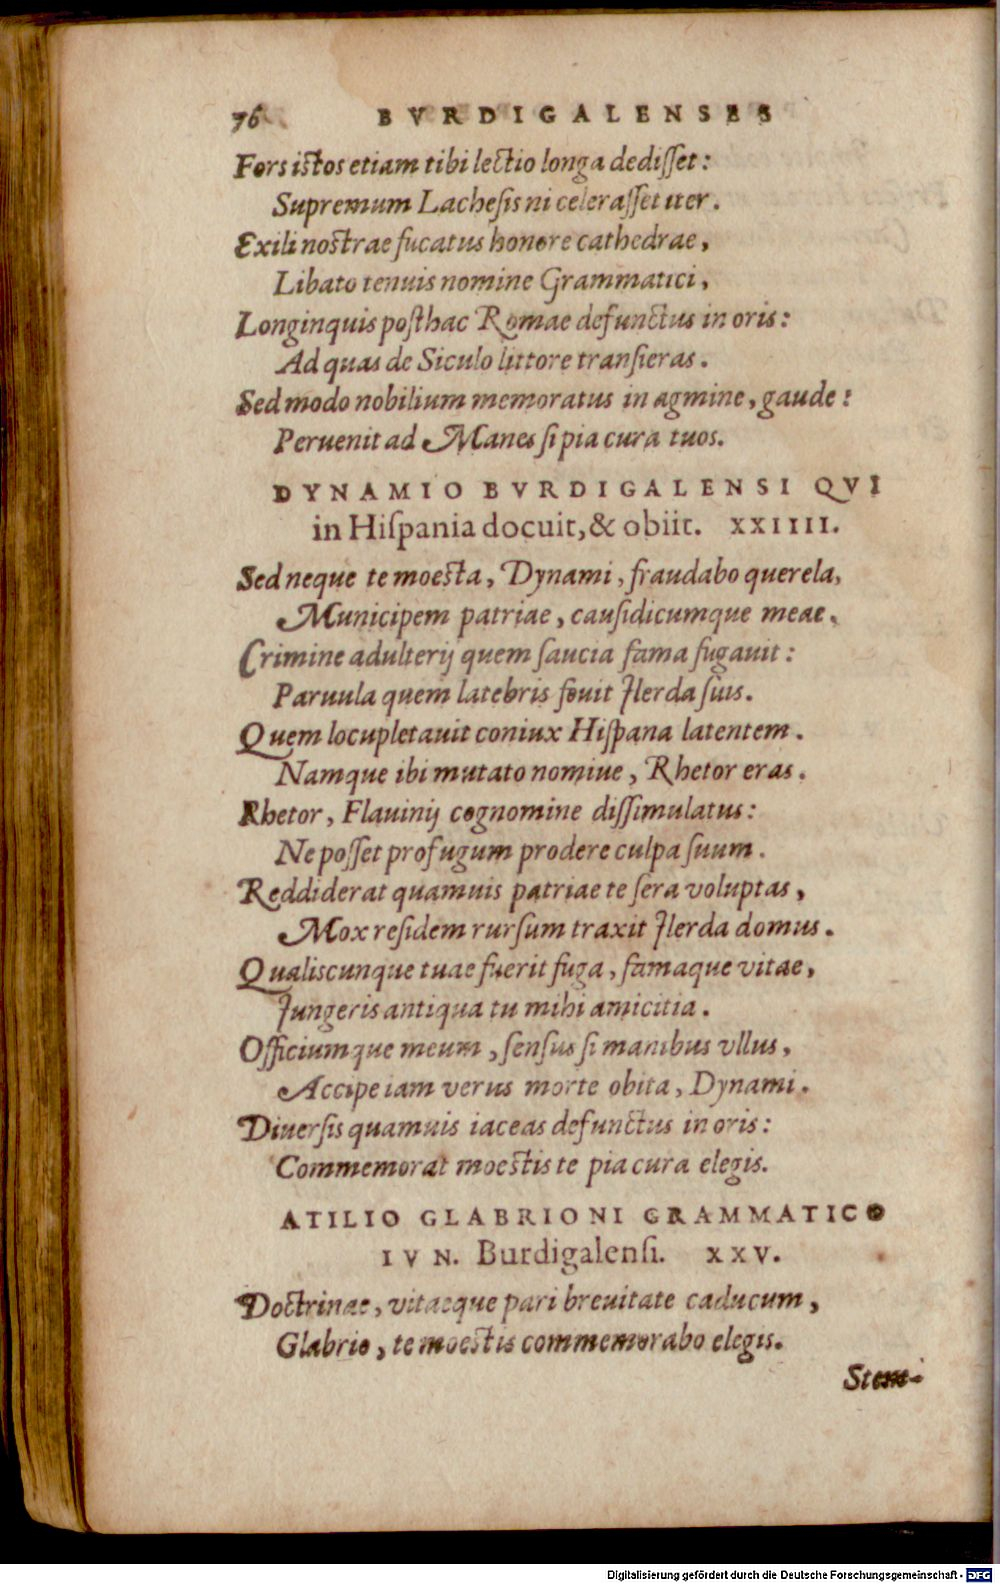 76 BVRDIGALENSES
Fors istos etiam tibi lectio longa dedisſet:
Supremum Lacheſis ni celeraſſet iter.
Exili nostrae fucatus honore cathedrae,
Libato tenuis nomine Grammatici,
Longinquis poſthac Romae defunctus in oris:
Ad quas de Siculo littore tranſieras.
Sed modo nobilium memoratus in agmine, gaude:
Peruenit ad Manes ſi pia cura tuos.
DYNAMIO BVRDIGALENSI QVI
in Hiſpania docuit, & obiit. XXIIII.
Sed neque te moesta, Dynami, fraudabo querela,
Municipem patriae, cauſidicumque meae,
Crimine adulterij quem ſaucia fama fugauit:
Paruula quem latebris fouit Ilerda ſuis.
Quem locupletauit coniux Hiſpana latentem.
Namque ibi mutato nomiue, Rhetor eras.
Rhetor, Flauinij cognomine diſſimulatus:
Ne poſſet profugum prodere culpa ſuum.
Reddiderat quamuis patriae te ſera voluptas,
Mox reſidem rurſum traxit Ilerda domus.
Qualiscunque tuae fuerit fuga, famaque vitae,
Iungeris antiqua tu mihi amicitia.
Officiumque meum, ſenſus ſi manibus vllus,
Accipe iam verus morte obita, Dynami.
Diuerſis quamuis iaceas defunctus in oris:
Commemorat moestis te pia cura elegis.
ATILIO GLABRIONI GRAMMATICO
IVN. Burdigalenſi. XXV.
Doctrinae, vitaeque pari breuitate caducum,
Glabrio, te moestis commemorabo elegis.
Stem-
Digitalisierung gefördert durch die Deutsche Forschungsgemeinschaft - DFG